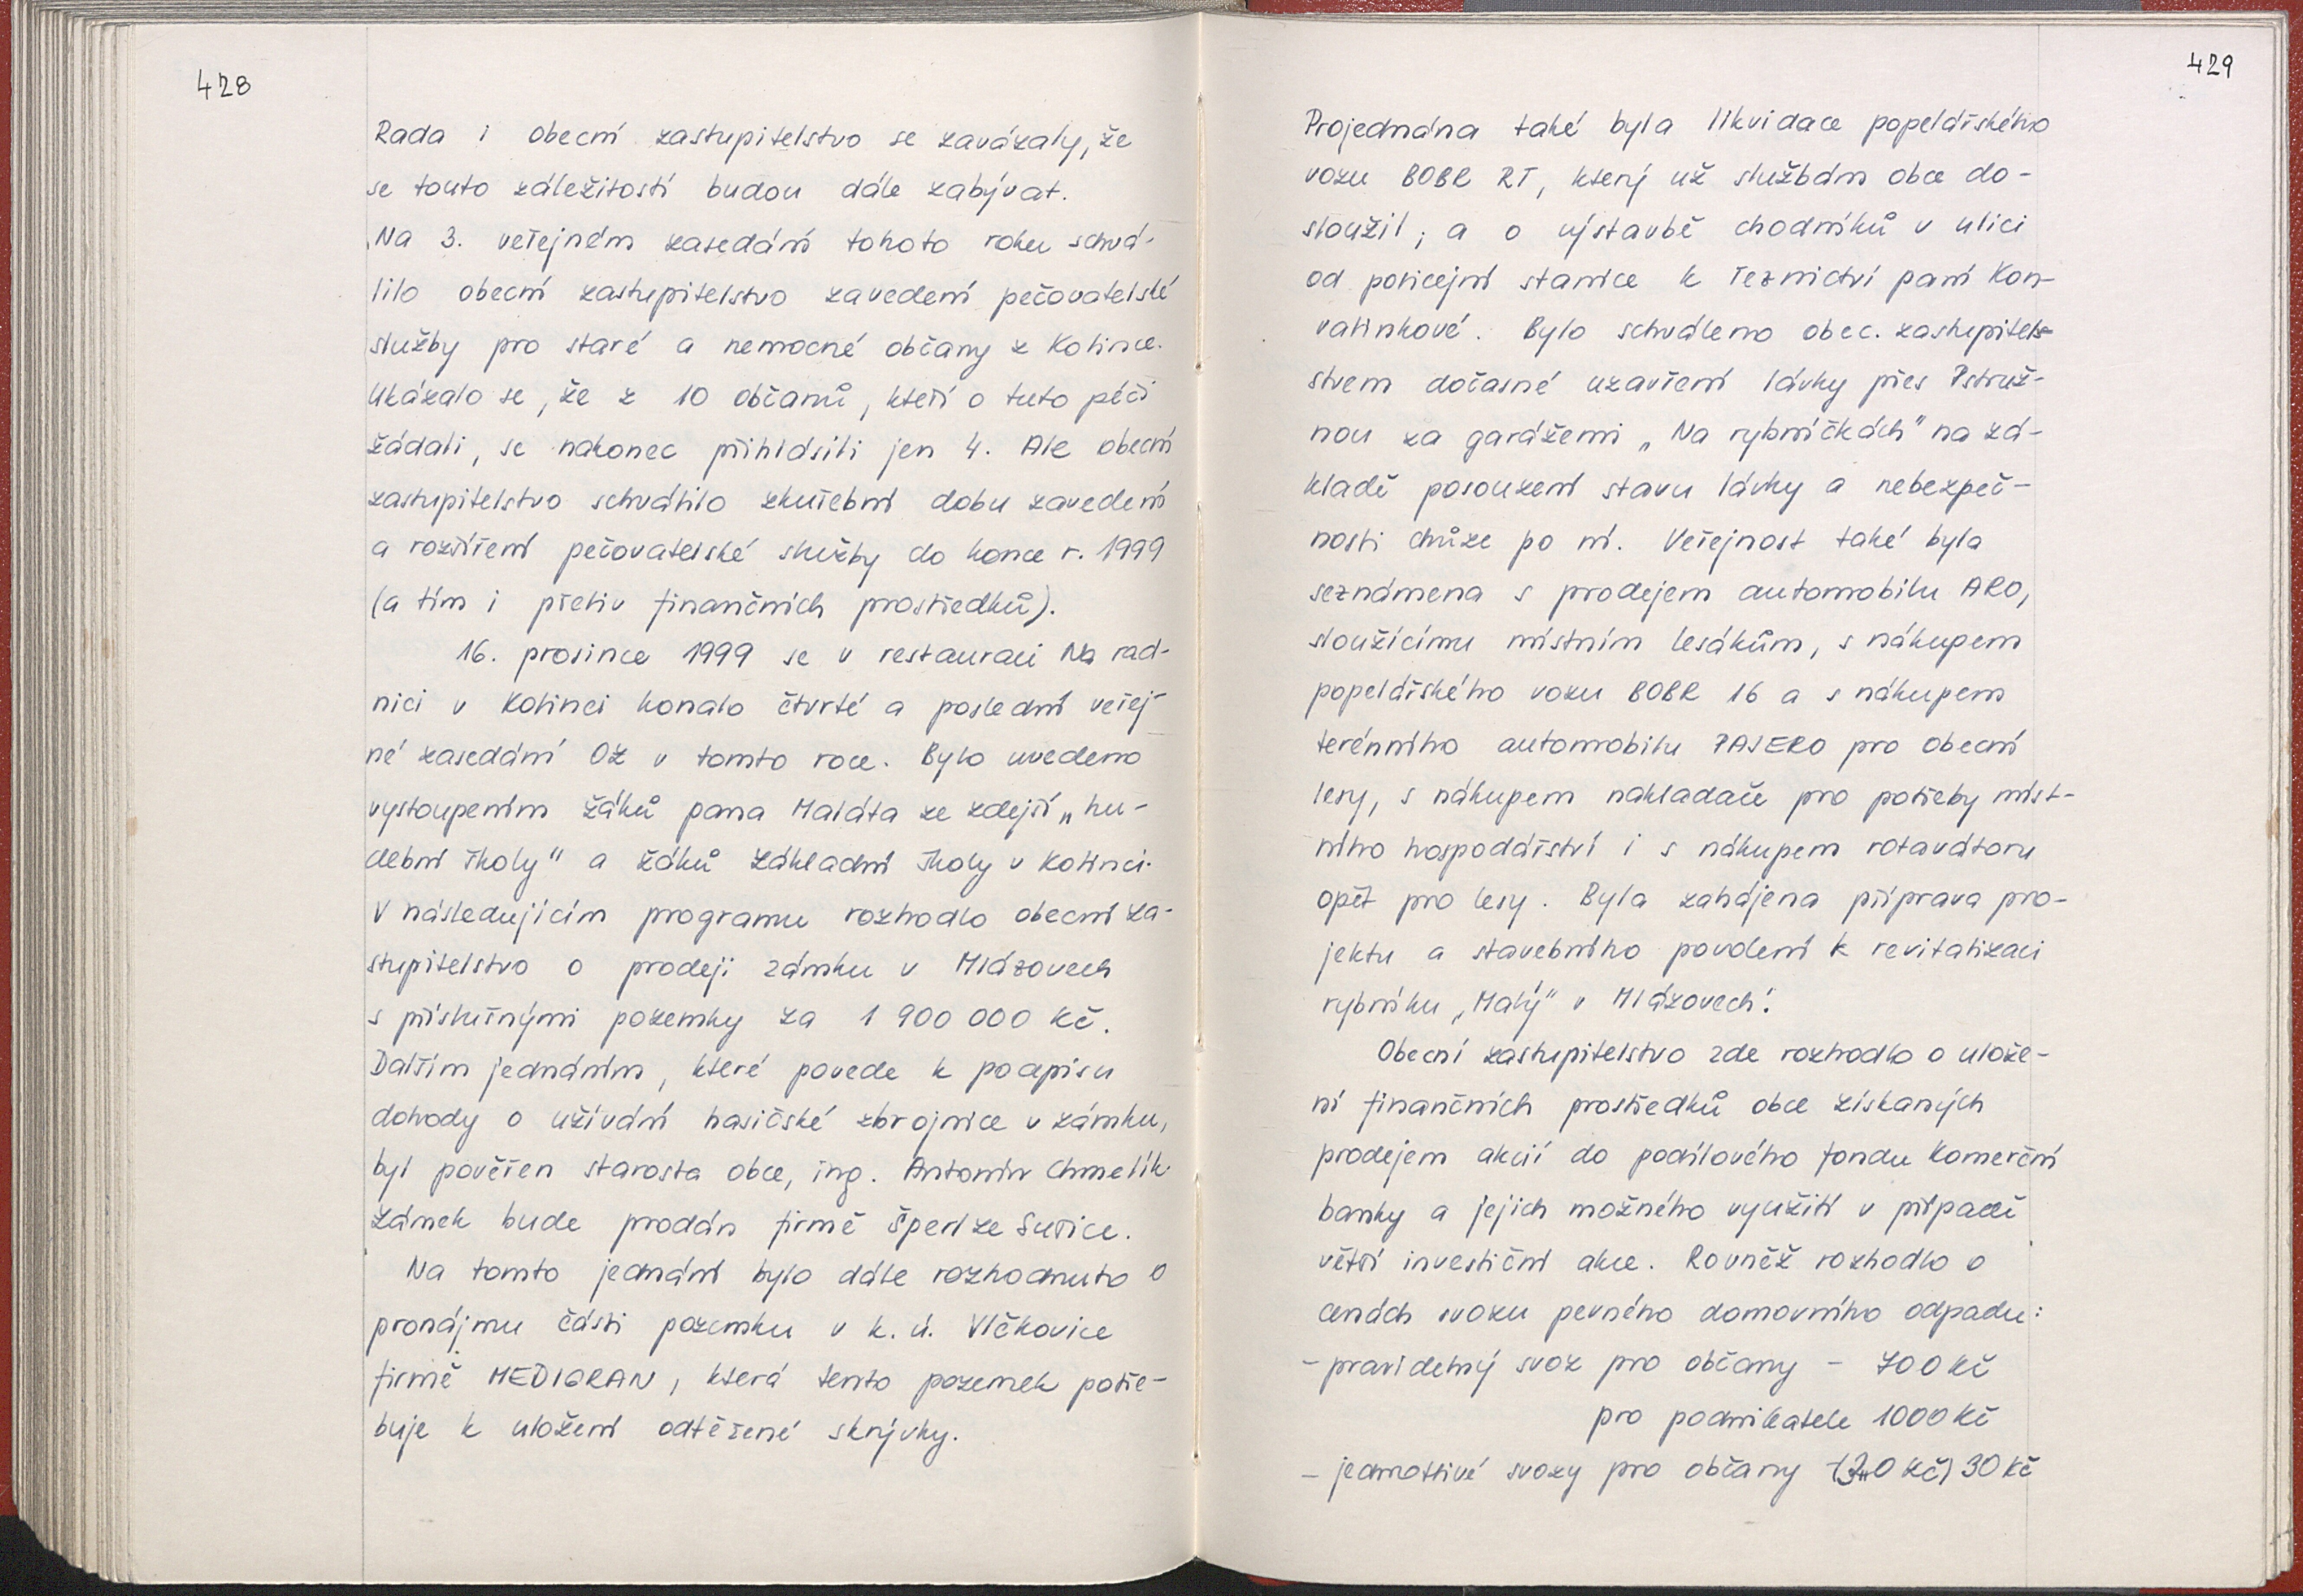 428
Rada i obecní zastupitelstvo se zavázaly, že
se touto záležitostí budou dále zabývat.
Na 3. veřejném zasedání tohoto roku schvá-
lilo obecní zastupitelstvo zavedení pečovatelské
služby pro staré a nemocné občany z Kolince.
Ukázalo se, že z 10 občanů, kteří o tuto péči
žádali, se nakonec přihlásili jen 4. Ale obecní
zastupitelstvo schválilo zkušební dobu zavedení
a rozšíření pečovatelské služby do konce r. 1999
(a tím i příliv finančních prostředků).
16. prosince 1999 se v restauraci Na rad-
nici v Kolinci konalo čtvrté a poslední veřej-
né zasedání OZ v tomto roce. Bylo uvedeno
vystoupením žáků pana Maláta ze zdejší „hu-
dební školy" a žáků Základní školy v Kolinci.
V následujícím programu rozhodlo obecní za-
stupitelstvo o prodeji zámku v Mlázovech
s příslušnými pozemky za 1 900 000 Kč.
Dalším jednáním, které povede k podpisu
dohody o užívání hasičské zbrojnice v zámku,
byl pověřen starosta obce, ing. Antonín Chmelík.
Zámek bude prodán firmě Šperl ze Sušice.
Na tomto jednání bylo dále rozhodnuto o
pronájmu části pozemku v k. ú. Vlčkovice
firmě MEDIGRAN, která tento pozemek potře-
buje k uložení odtěžené skrývky.
429
Projednána také byla likvidace popelářského
vozu BOBR RT, který už službám obce do-
sloužil; a o výstavbě chodníků v ulici
od policejní stanice k řeznictví paní Kon-
valinkové. Bylo schváleno obec. zastupitels-
stvem dočasné uzavření lávky přes Pstruž-
nou za garážemi „Na rybníčkách" na zá-
kladě posouzení stavu lávky a nebezpeč-
nosti chůze po ní. Veřejnost také byla
seznámena s prodejem automobilu ARO,
sloužícímu místním lesákům, s nákupem
popelářského vozu BOBR 16 a s nákupem
terénního automobilu PAJERO pro obecní
lesy, s nákupem nakladače pro potřeby míst-
ního hospodářství i s nákupem rotavátoru
opět pro lesy. Byla zahájena příprava pro-
jektu a stavebního povolení k revitalizaci
rybníku „Malý" v Mlázovech.
Obecní zastupitelstvo zde rozhodlo o ulože-
ní finančních prostředků obce získaných
prodejem akcií do podílového fondu Komerční
banky a jejich možného využití v případě
větší investiční akce. Rovněž rozhodlo o
cenách svozu pevného domovního odpadu:
- pravidelný svoz pro občany - 700 Kč
pro podnikatele 1000 Kč
- jednotlivé svozy pro občany 30 Kč